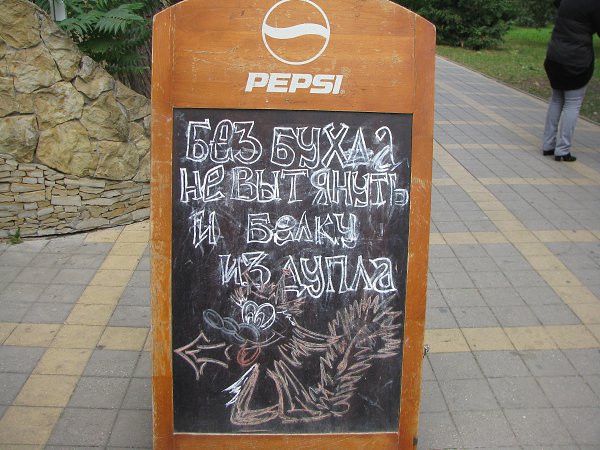 PEPSI
БЕЗ БУХЛА
НЕ ВЫТЯНУТЬ
И БЕЛКУ
ИЗ ДУПЛА